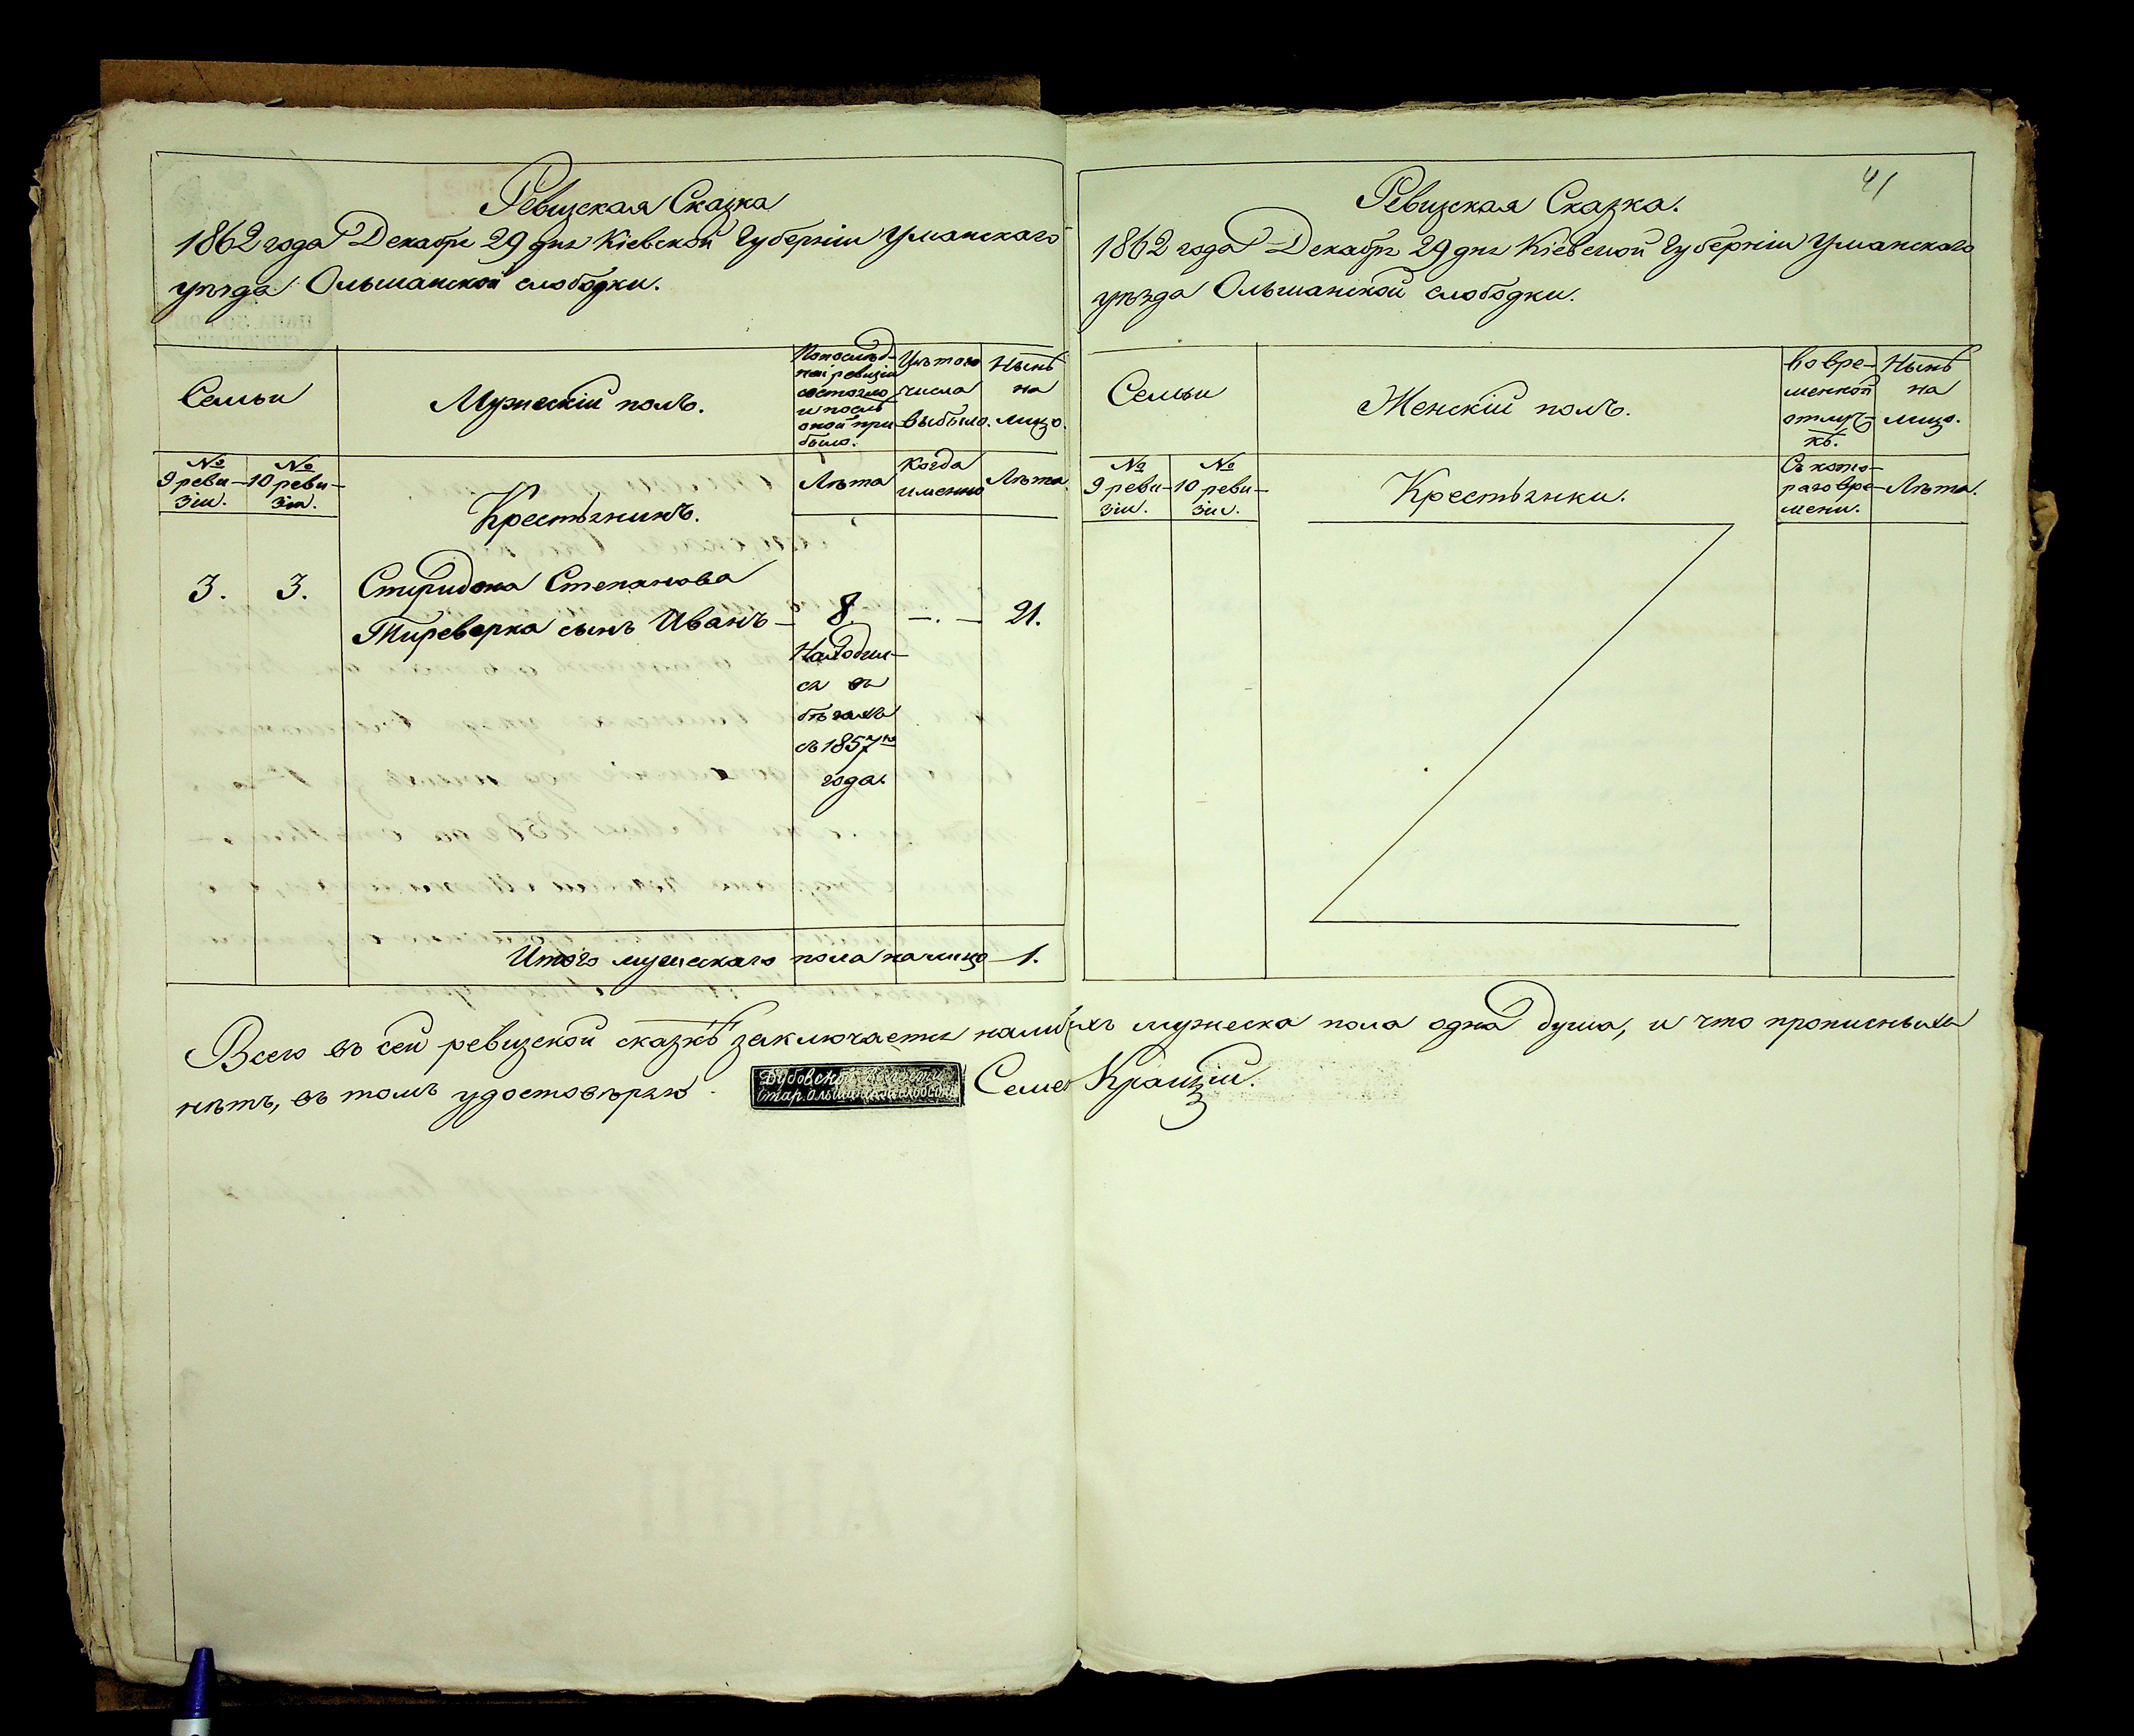 Ревизская Сказка
1862 года Декабря 29 дня Кіевской Губерніи Уманскаго
уѣзда Ольшанской слободки.
Семьи
Мужескій полъ.
По послѣд-
ней ревизіи
состояло
и послѣ
оной при
было.
Изъ того
числа
выбыло.
Нынѣ
на
лицо.
№
9 реви-
зіи.
№
10 реви-
зіи.
Крестьянинъ.
Лѣта
Когда
именно
Лѣта.
3. 3. Спиридона Степанова
Тиреверка сынъ Иванъ — 8. —.— 21.
Находил-
ся въ
бѣгахъ
съ 1857го
года.
Итого мужескаго пола налицо 1.
41
Ревизская Сказка.
1862 года Декабря 29 дня Кіевской Губерніи Уманскаго
уѣзда Ольшанской слободки.
Семьи
Женскій полъ.
во вре-
менной
отлуч-
кѣ.
Нынѣ
на
лицо.
№
9 реви-
зіи.
№
10 реви-
зіи.
Крестьянки.
Съ кото-
раго вре-
мени.
Лѣта.
Всего въ сей ревизской сказкѣ заключается мужеска пола одна душа, и что прописныхъ
нѣтъ, въ томъ удостовѣряю.
Дубовской Волости
Стар. Ольшан. слободки